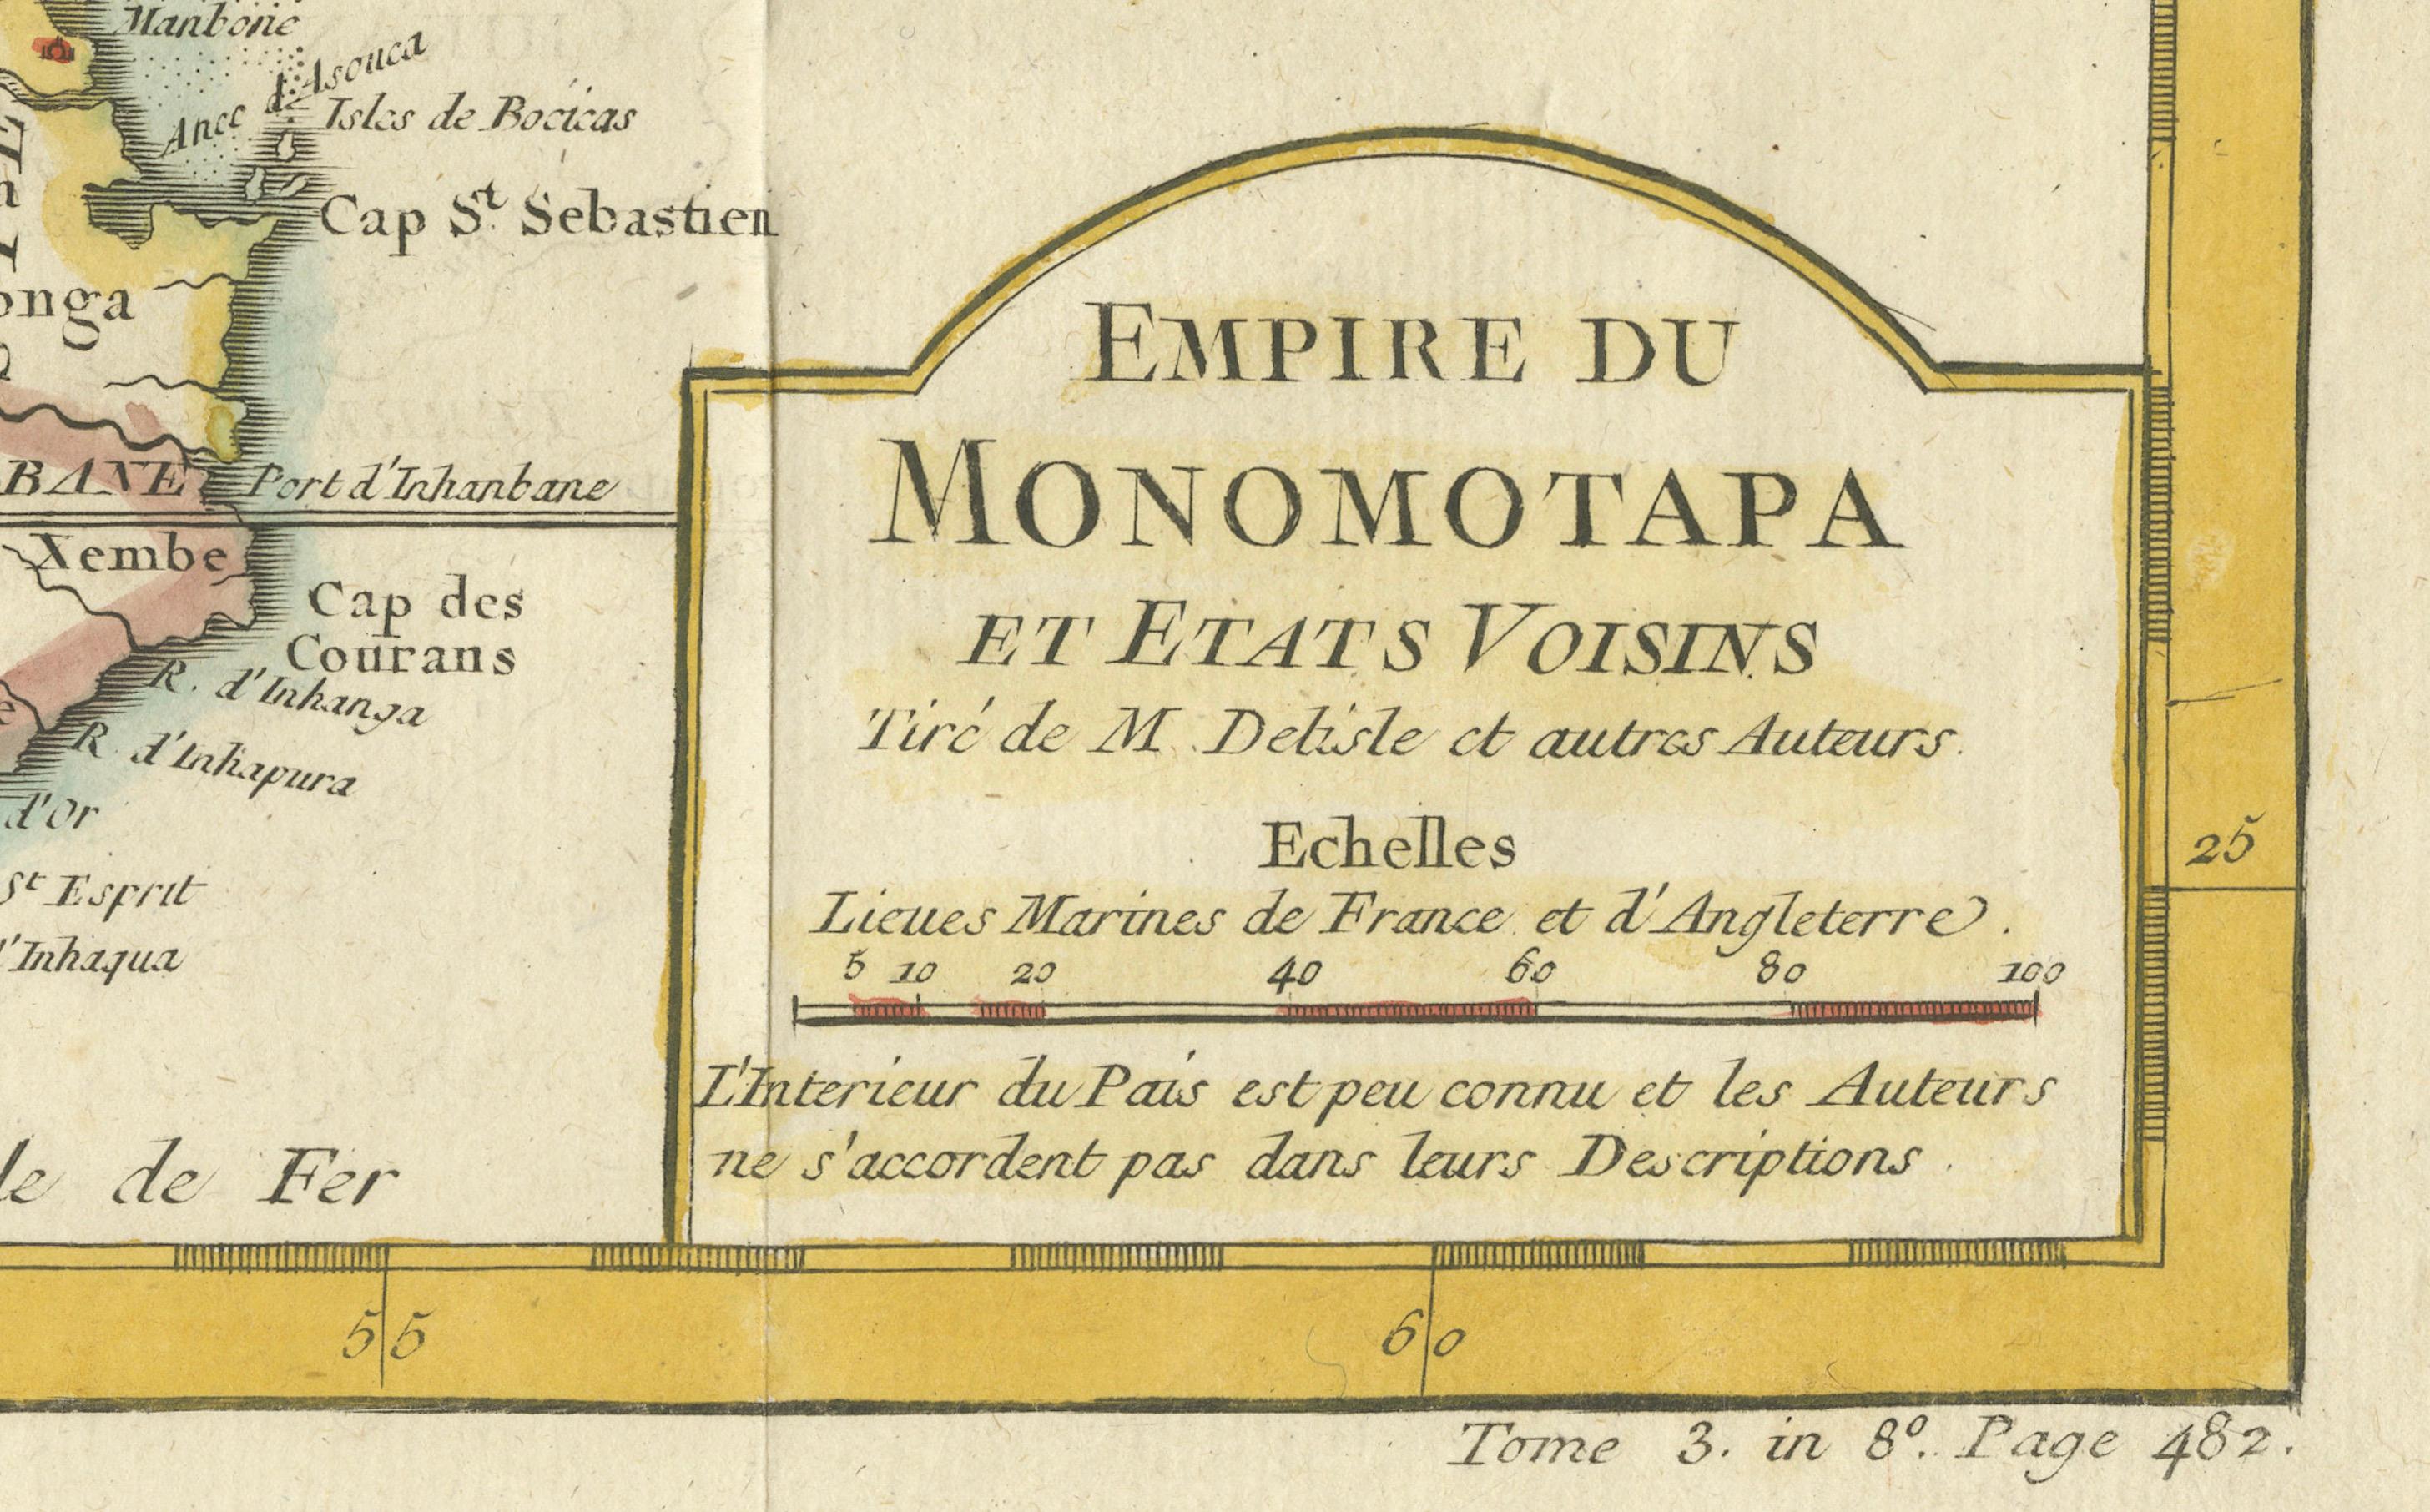 Manbone
Ance d'Asouca
Isles de Bocicas
Cap S.t Sebastien
onga
BANE
Port d'Inhanbane
Xembe
Cap des
Courans
R. d'Inhanga
R. d'Inhapura
d'Or
St Esprit
d'Inhaqua
de Fer
EMPIRE DU
MONOMOTAPA
ET ETATS VOISINS
Tiré de M. Delisle et autres Auteurs.
Echelles
Lieues Marines de France et d'Angleterre.
5 10 20 40 60 80 100
L'Interieur du Païs est peu connu et les Auteurs
ne s'accordent pas dans leurs Descriptions.
25
55
60
Tome 3. in 8º. Page 482.